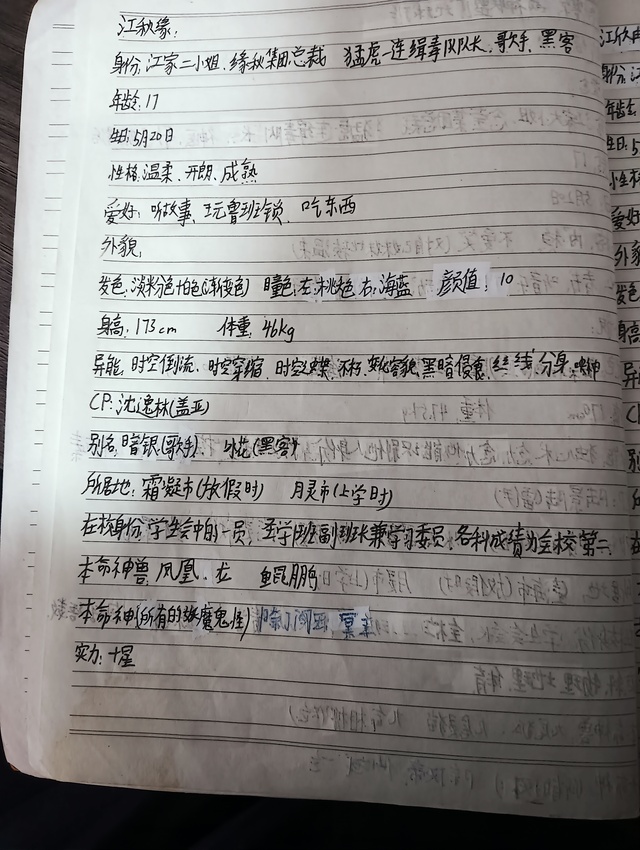 江秋缘:
身份:江家二小姐、缘秋集团总裁 猛虎一连缉毒队队长、歌手、黑客
年龄:17
生日:5月20日
性格:温柔、开朗、成熟
爱好:听故事、玩鲁班锁、吃东西
外貌:
发色:淡粉色+白色(渐变色) 瞳色:左:桃色 右:海蓝 颜值:10
身高:173cm 体重:46kg
异能:时空倒流、时空穿梭、时空 不朽、 容貌、黑暗侵食、丝线、分身、
CP:沈逸林(盖亚)
别名:暗银(歌手) 小花(黑客)
所居地:霜凝市(放假时) 月灵市(上学时)
在校身份:学生会中的一员、圣学班副班长兼学习委员、各科成绩为全校第二
本命神兽:凤凰、龙 鲲鹏
本命神(所有的 魔鬼怪)
实力:十星
江秋
身份:
年龄:
生日:5
性格
爱好
外貌
发色
身高